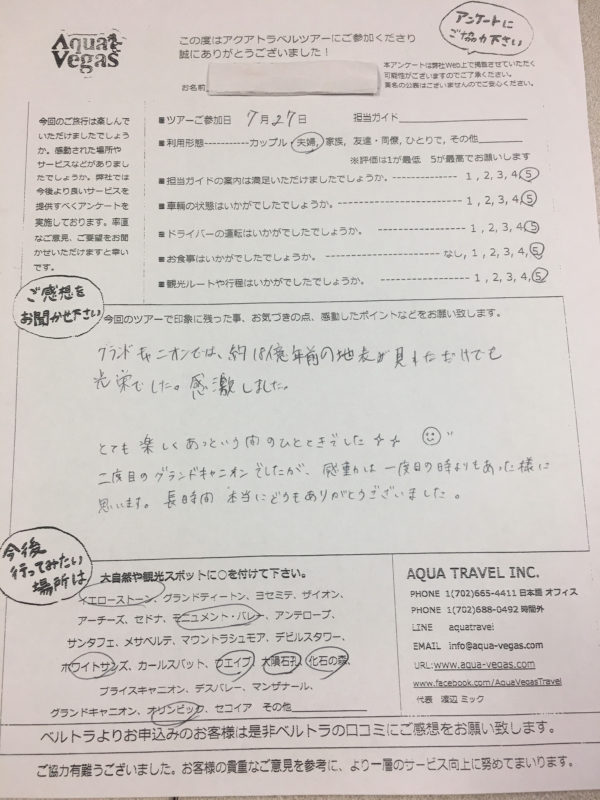 Aqua Vegas
この度はアクアトラベルツアーにご参加くださり
誠にありがとうございました！
アンケートに
ご協力下さい
本アンケートは弊社Web上で掲載させていただく
可能性がございますのでご了承ください。
実名の公表はございませんのでご安心ください。
お名前
今回のご旅行は楽しんで
いただけましたでしょう
か。感動された場所や
サービスなどがありまし
たでしょうか。弊社では
今後より良いサービスを
提供すべくアンケートを
実施しております。率直
なご意見、ご要望をお聞
かせいただけますと幸い
です。
■ツアーご参加日 7月27日 担当ガイド
■利用形態-----------カップル・夫婦, 家族, 友達・同僚, ひとりで, その他
※評価は1が最低 5が最高でお願いします
■担当ガイドの案内は満足いただけましたでしょうか。---------------- 1 , 2, 3, 4, 5
■車輌の状態はいかがでしたでしょうか。------------------------ 1, 2, 3, 4, 5
■ドライバーの運転はいかがでしたでしょうか。------------------- 1, 2, 3, 4, 5
■お食事はいかがでしたでしょうか。----------------------- なし, 1, 2, 3, 4, 5
■観光ルートや行程はいかがでしたでしょうか。------------------- 1, 2, 3, 4, 5
ご感想を
お聞かせ下さい
今回のツアーで印象に残った事、お気づきの点、感動したポイントなどをお願い致します。
グランドキャニオンでは、約18億年前の地表が見れただけでも
光栄でした。感激しました。
とても楽しくあっという間のひとときでした☆☆
二度目のグランドキャニオンでしたが、感動は一度目の時よりもあった様に
思います。長時間 本当にどうもありがとうございました。
今後
行ってみたい
場所は
大自然や観光スポットに○を付けて下さい。
イエローストーン、グランドティートン、ヨセミテ、ザイオン、
アーチーズ、セドナ、モニュメント・バレー、アンテロープ、
サンタフェ、メサベルテ、マウントラシュモア、デビルスタワー、
ホワイトサンズ、カールスバット、ウエイブ、大隕石孔、化石の森、
ブライスキャニオン、デスバレー、マンザナール、
グランドキャニオン、オリンピック、セコイア その他
AQUA TRAVEL INC.
PHONE 1(702)665-4411 日本語 オフィス
PHONE 1(702)688-0492 時間外
LINE aquatravel
EMAIL info@aqua-vegas.com
URL:www.aqua-vegas.com
www.facebook.com/AquaVegasTravel
代表 渡辺 ミック
ベルトラよりお申込みのお客様は是非ベルトラの口コミにご感想をお願い致します。
ご協力有難うございました。お客様の貴重なご意見を参考に、より一層のサービス向上に努めてまいります。